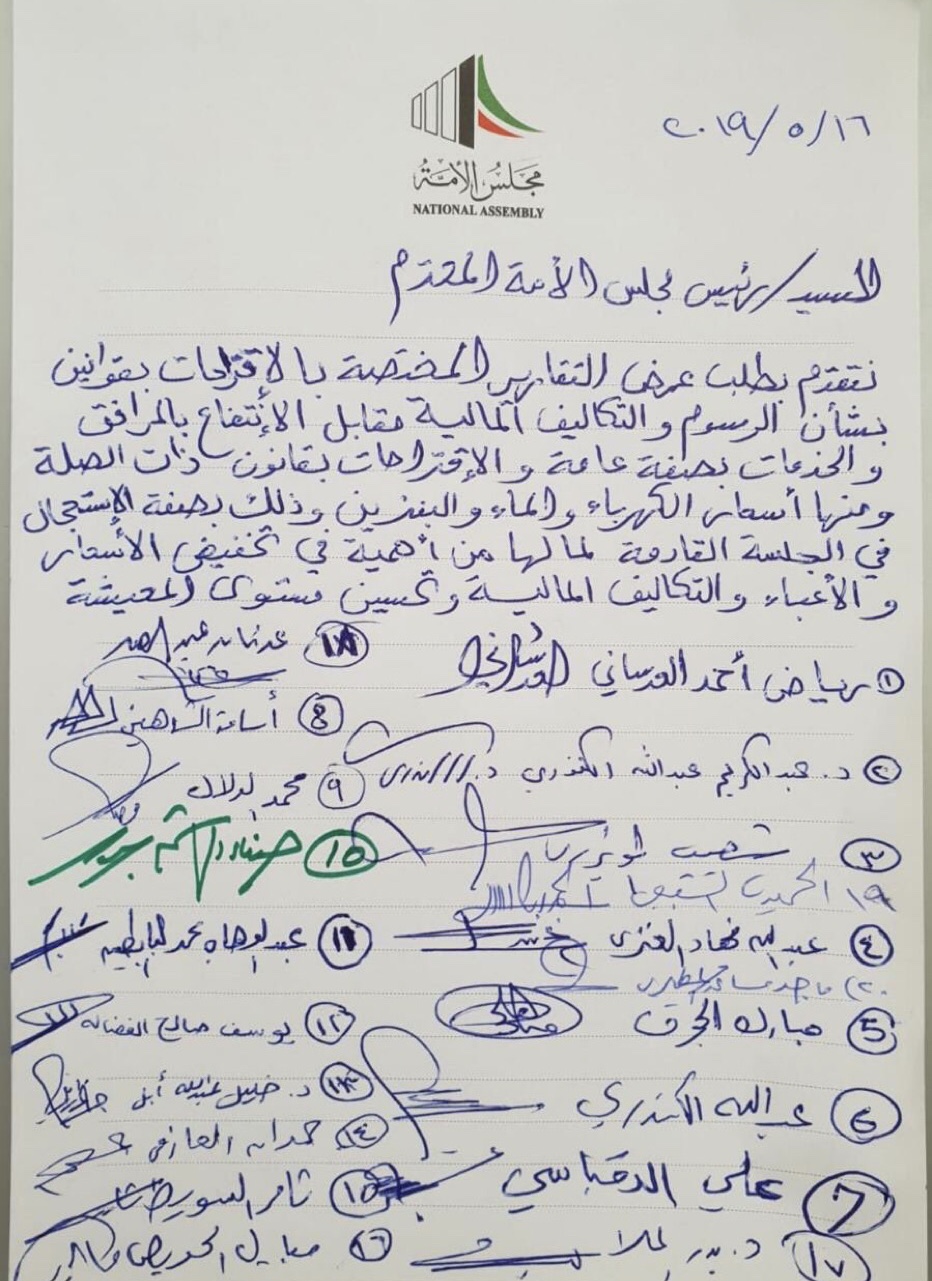 ٢٠١٩/٥/١٦
مجلس الأمة
NATIONAL ASSEMBLY
السيد/ رئيس مجلس الأمة المحترم
نتقدم بطلب عرض التقارير المختصة بالإقتراحات بقوانين
بشأن الرسوم والتكاليف المالية مقابل الإنتفاع بالمرافق
والخدمات بصفة عامة والإقتراحات بقانون ذات الصلة
ومنها أسعار الكهرباء والماء والبنزين وذلك بصفة الإستعجال
في الجلسة القادمة لما لها من أهمية في تخفيض الأسعار
والأعباء والتكاليف المالية وتحسين مستوى المعيشة
١ رياض أحمد العدساني
٢ د. عبدالكريم عبدالله الكندري
٣ شعيب المويزري
١٩ الحميدي السبيعي
٤ عبدالله فهاد العنزي
٢٠ ماجد مساعد المطيري
5 مبارك الحجرف
6 عبدالله الكندري
7 علي الدقباسي
١٧ د. بدر الملا
١٨ عدنان عبدالصمد
8 أسامة الشاهين
٩ محمد الدلال
10
11 عبدالوهاب محمد البابطين
١٢ يوسف صالح الفضالة
١٣ د. خليل عبدالله أبل
١٤ حمدان العازمي
١٥ ثامر السويط
١٦ مبارك الحريص